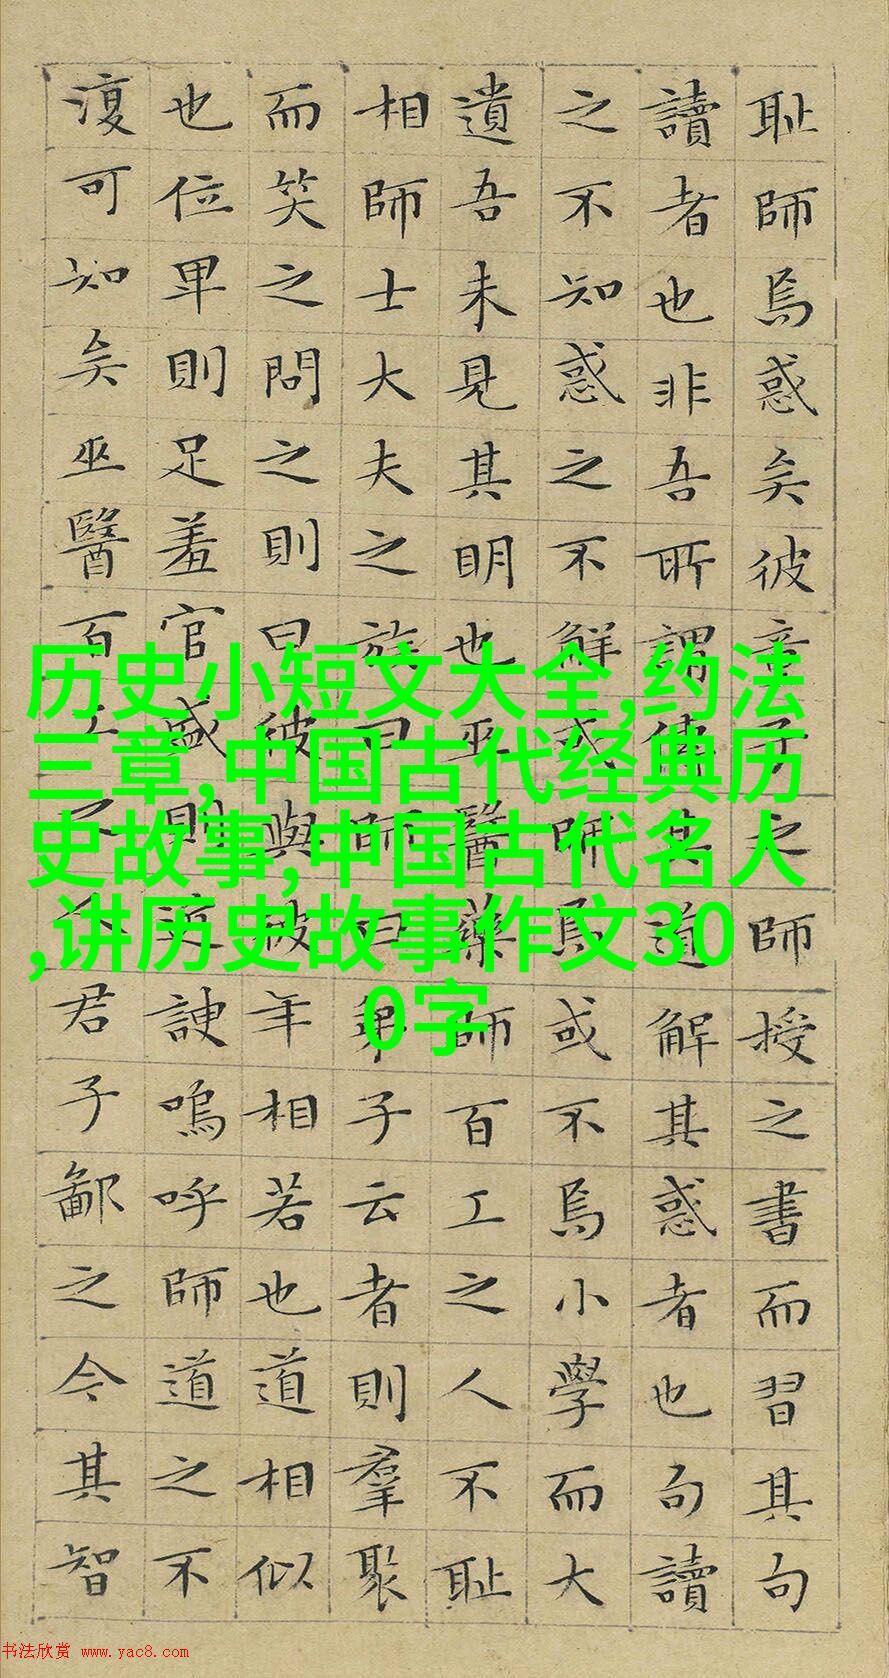 耻師焉惑矣彼童子之師授之書而習其句
讀者也非吾所謂傳其道解其惑者也句讀
之不知惑之不解或師焉或不焉小學而大
遺吾未見其明也巫醫藥師百工之人不耻
相師士大夫之族曰師曰弟子云者則羣聚
而笑之問之則曰彼與彼年相若也道相似
也位卑則足羞官盛則近諛嗚呼師道之不
復可知矣巫醫百工之人君子鄙之今其智
历史小短文大全,约法
三章,中国古代经典历
史故事,中国古代名人
,讲历史故事作文30
0字
书法欣赏 www.yac8.com